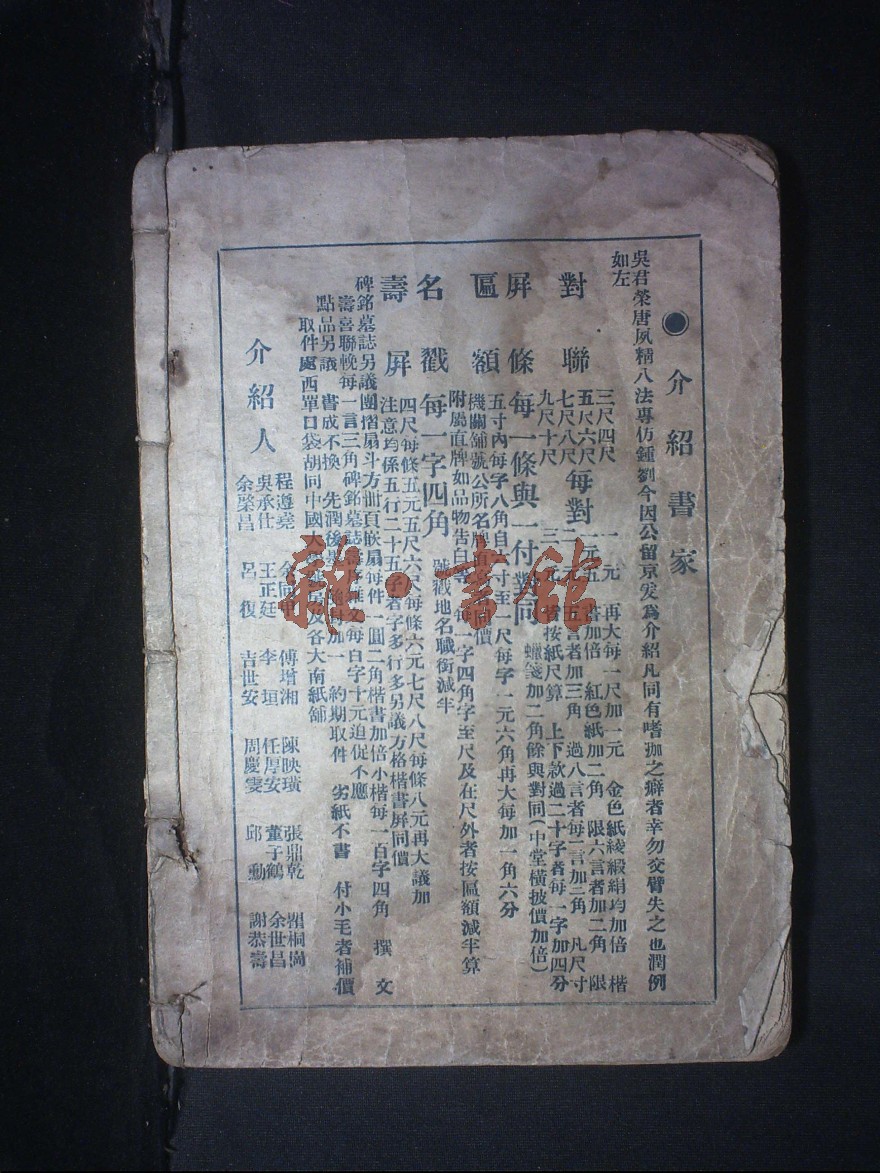 ●介紹書家
吳君榮唐夙精八法專仿鍾劉今因公留京爰為介紹凡同有嗜痂之癖者幸勿交臂失之也潤例
如左
對聯
三尺四尺 一元 再大每一尺加一元 金色紙綾緞絹均加倍 楷
五尺六尺 每對 二元 書加倍 紅色紙加二角 限六言者加二角 限
七尺八尺 五言者加三角 過八言者每一言加二角 凡尺寸
九尺十尺 三元 皆按紙尺算 上下款過二十字者每一字加四分
屏條 每一條與一付對同 蠟箋加二角餘與對同(中堂橫披價加倍)
匾額 五寸內每字八角自 寸至二尺每字一元六角再大每加一角六分
機關舖號公所名牌 同價
附屬直牌如品物告白等 每一字四角字至尺及在尺外者按區額減半算
名戳 每一字四角 號戳地名職銜減半
壽屏 四尺每條五元五尺六尺每條六元七尺八尺每條八元再大議加
注意均係五行二十五字者字多行多另議方格楷書屏同價
碑銘墓誌另議團摺扇斗方冊頁嵌扇每件一圓二角楷書加倍小楷每一百字四角 撰文
壽喜聯輓每一言三角碑銘墓誌壽序雜文每百字十元迫促不應
點品另議 書成不換 先潤後墨 加一 約期取件 劣紙不書 付小毛者補價
取件處西單口袋胡同中國大學 及各大南紙舖
介紹人
程遵堯 余同甲 傅增湘 陳映璜 張鼎乾 瞿桐崗
吳承仕 王正廷 李垣 任厚安 董子鶴 余世昌
余棨昌 呂復 吉世安 周慶雯 邱勳 謝恭壽
雜·書館